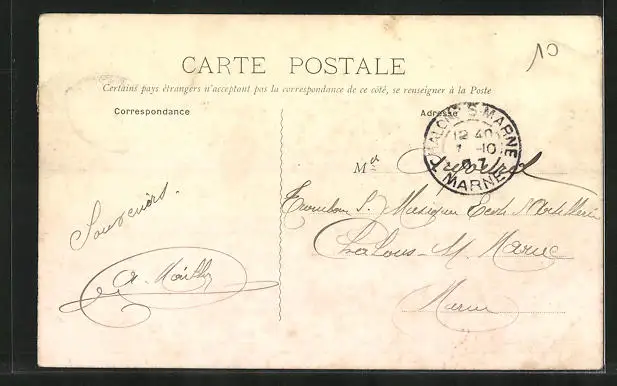 10
CARTE POSTALE
Certains pays étrangers n'acceptant pas la correspondance de ce côté, se renseigner à la Poste
Correspondance
Adresse
CHALONS-S-MARNE
12 40
7 -10
07
MARNE
M
Souvenirs.
Musicien Ecole d'Artillerie
Chalons-M. Marne
Marne